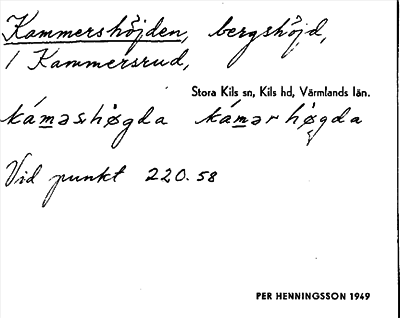 Kammershöjden, bergshöjd,
/ Kammersrud,
Stora Kils sn, Kils hd, Värmlands län.
kámashøgda kámarhøgda
Vid punkt 220.58
PER HENNINGSSON 1949